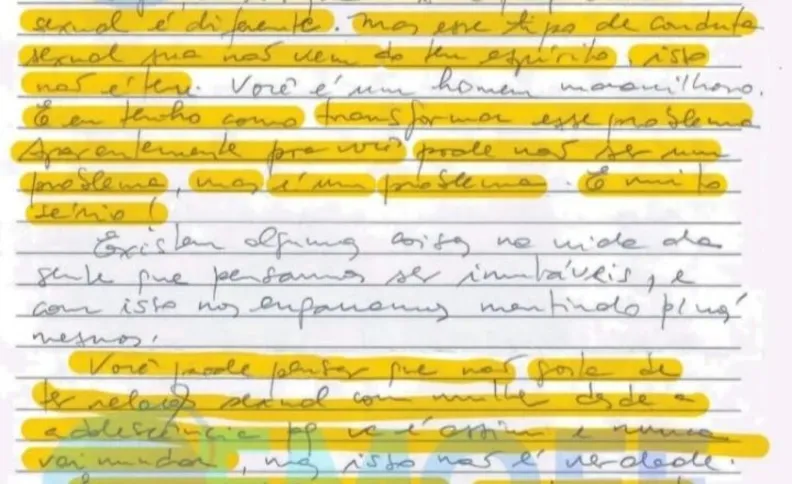 sexual é diferente. Mas esse tipo de conduta
sexual que não vem do teu espírito, isto
não é teu. Você é um homem maravilhoso.
E eu tenho como transformar esse problema
Aparentemente pra você pode não ser um
problema, mas é um problema. É muito
sério!
Existem algumas coisas na vida da
gente que pensamos ser imutáveis, e
com isso nos enganamos mentindo p/ nós
mesmos.
Você pode pensar que não gosta de
ter relação sexual com mulher desde a
adolescência pq vc é assim e nunca
vai mudar, mas isto não é verdade.